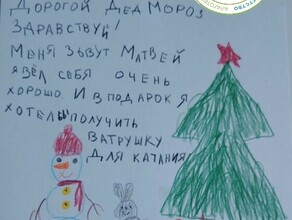 ДОРОГОЙ ДЕД МОРОЗ
ЗДРАВСТВУЙ!
МЕНЯ ЗЪВУТ МАТВЕЙ
Я ВЁЛ СЕБЯ ОЧЕНЬ
ХОРОШО И В ПОДАРОК Я
ХОТЕЛ БЫ ПОЛУЧИТЬ
ВАТРУШКУ
ДЛЯ КАТАНИЯ